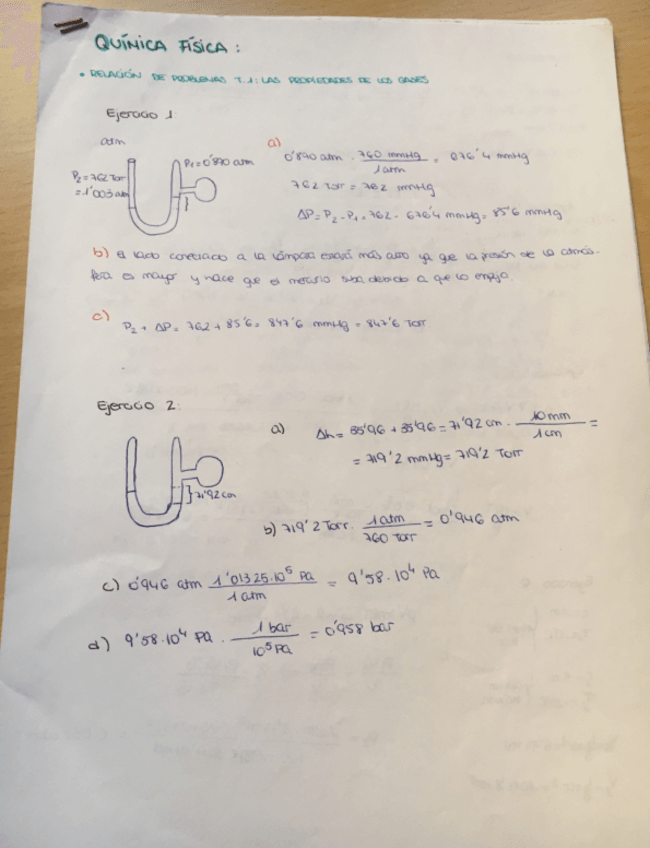 QUÍMICA FÍSICA:
• RELACIÓN DE PROBLEMAS T.1: LAS PROPIEDADES DE LOS GASES
Ejercicio 1:
atm
P₁ = 0'890 atm
P₂ = 762 Torr
= 1'003 atm
a)
0'890 atm · 760 mmHg / 1 atm = 676'4 mmHg
762 Torr = 762 mmHg
ΔP = P₂ - P₁ = 762 - 676'4 mmHg = 85'6 mmHg
b) El lado conectado a la lámpara estará más alto ya que la presión de la atmós-
fera es mayor y hace que el mercurio suba debido a que lo empuja.
c)
P₂ + ΔP = 762 + 85'6 = 847'6 mmHg = 847'6 Torr
Ejercicio 2:
71'92 cm
a) Δh = 35'96 + 35'96 = 71'92 cm · 10 mm / 1 cm =
= 719'2 mmHg = 719'2 Torr
b) 719'2 Torr · 1 atm / 760 Torr = 0'946 atm
c) 0'946 atm 1'01325·10⁵ Pa / 1 atm = 9'58·10⁴ Pa
d) 9'58·10⁴ Pa · 1 bar / 10⁵ Pa = 0'958 bar